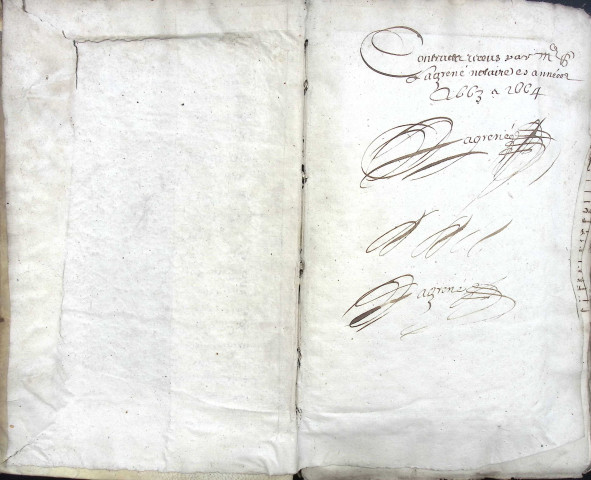 Contractz receus par me
Lagrené notaire es années
1663 a 1664
Lagrené
Lagrené